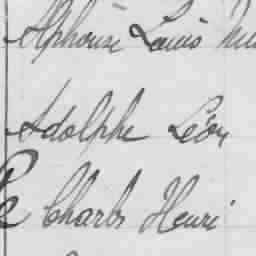 Alphonse Louis
Adolphe Léon
Charles Henri